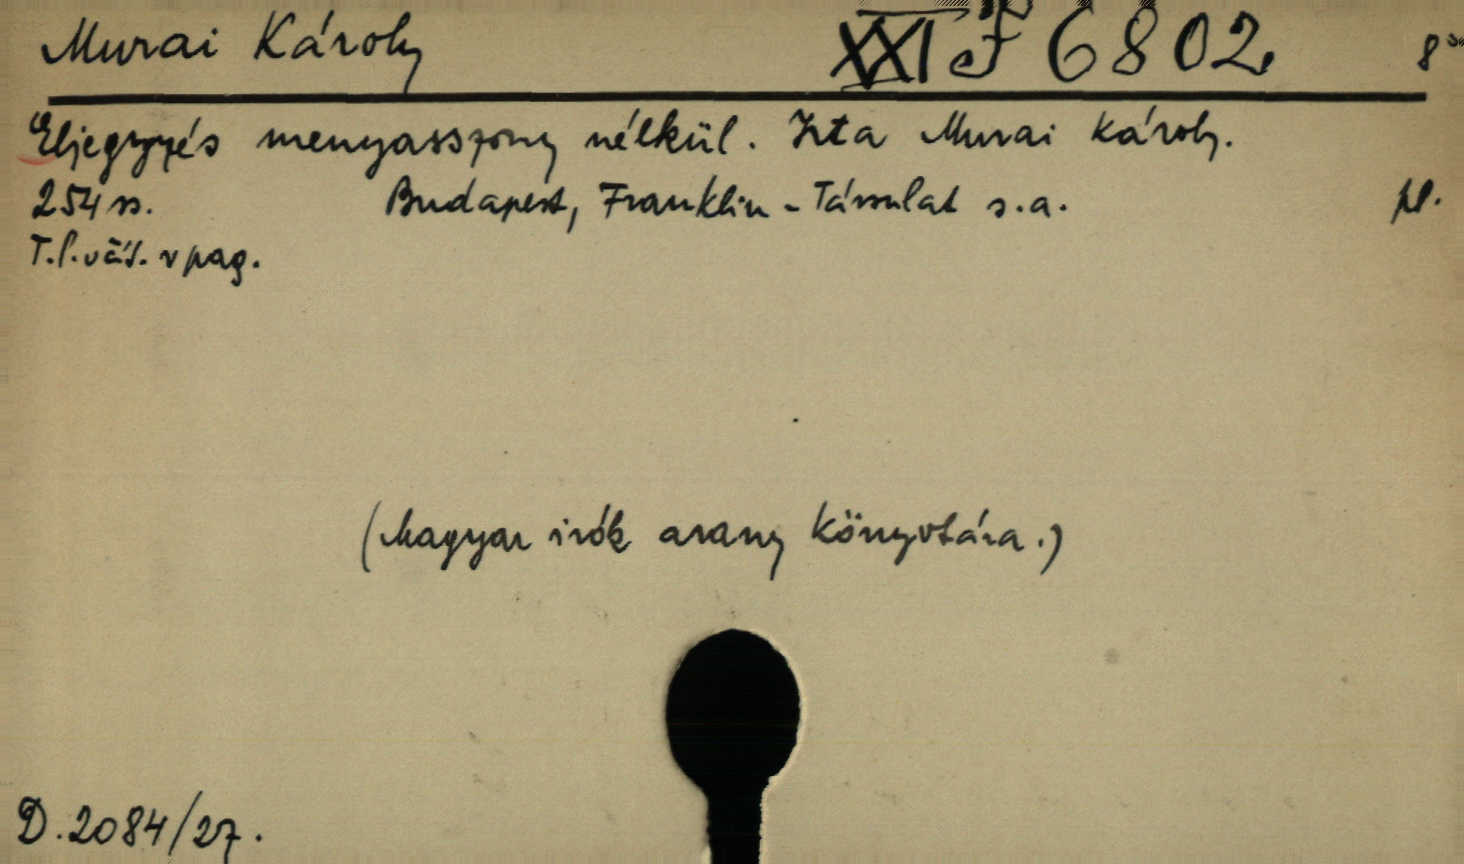 Murai Károly XXI F 6802 8°
Eljegyzés menyasszony nélkül. Irta Murai Károly.
254 ss. Budapest, Franklin-Társulat s.a. pl.
T.l.váš. v pag.
(Magyar irók arany könyvtára.)
D.2084/27.